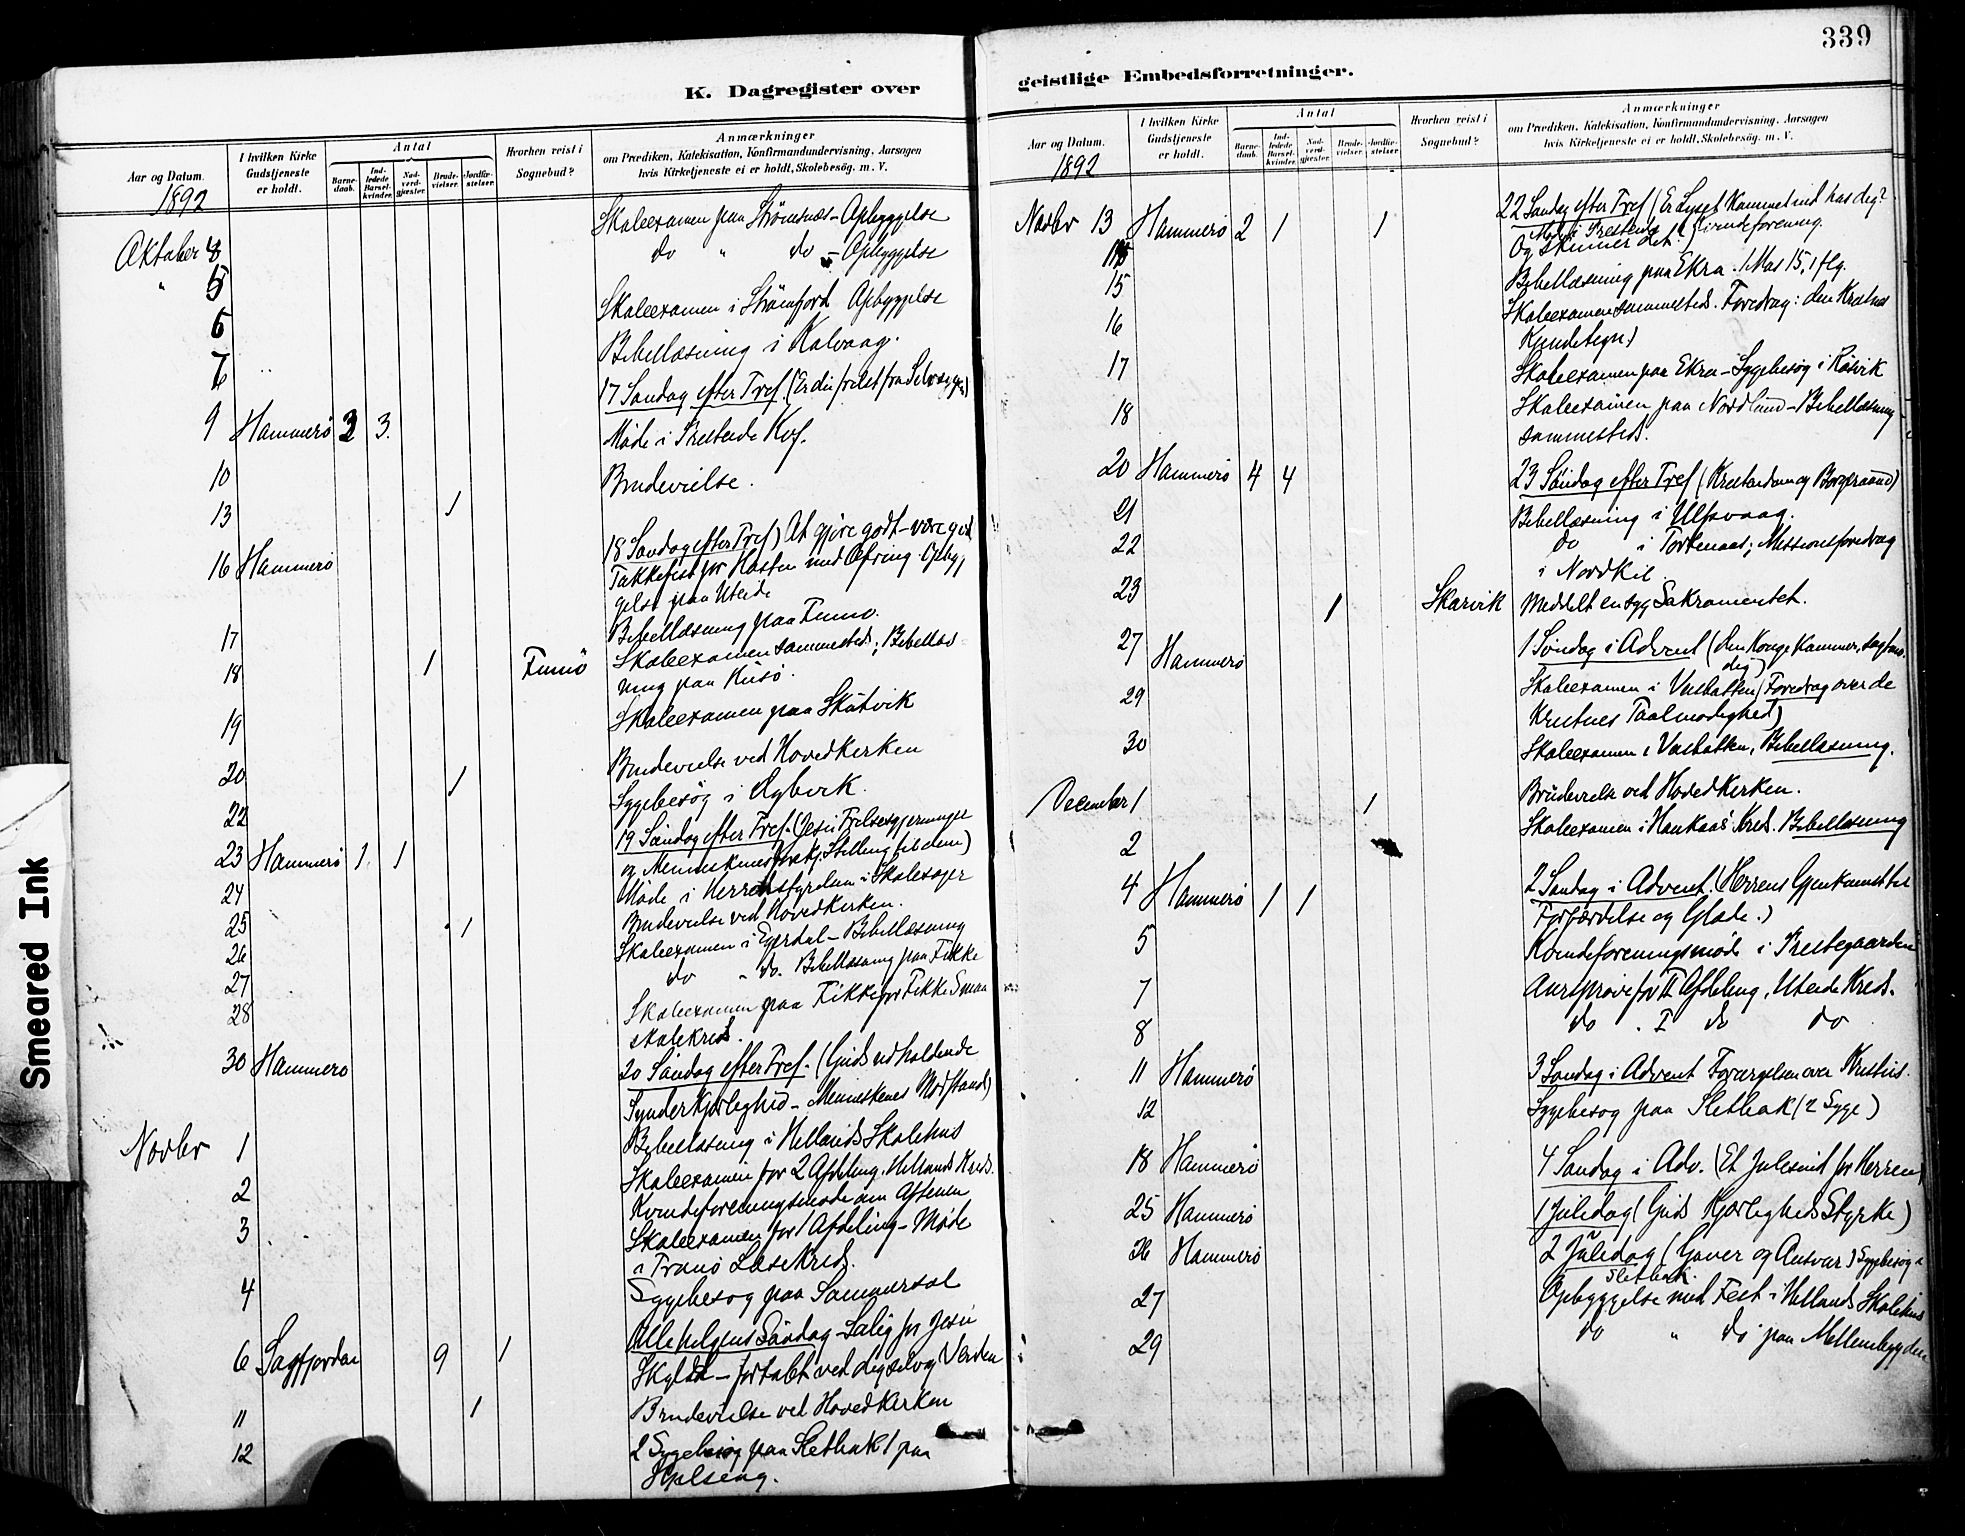 339
K. Dagregister over
geistlige Embedsforretninger.
Aar og Datum.
I hvilken Kirke Gudstjeneste er holdt.
Antal
Barnedaab.
Indledede Barselkvinder.
Nadverdgjæster
Brudevielser.
Jordfæstelser
Hvorhen reist i Sognebud?
Anmærkninger
om Prædiken, Katekisation, Konfirmandundervisning, Aarsagen
hvis Kirketjeneste ei er holdt, Skolebesøg. m. V.
1892
Skoleexamen paa Strømsnæs - Opbyggelse
Oktober
do " do - Opbyggelse
5
Skoleexamen i Strømfjord Opbyggelse
6
Bibellæsning i Kalvaag.
7
17 Søndag efter Tref.
9 Hammerø 3 3.
Møde i Præstenes Kvf.
10
Brudevielse.
13 1
18 Søndag efter Tref) At gjøre godt - være god
16 Hammerø
Takkefest for Høsten med Ofring. Opbyg
gelse paa Uteide
17
Bibellæsning paa Finnø.
18 1 Finnø
Skoleexamen sammesteds; Bibellæs-
ning paa
19
Skoleexamen paa Skutvik
Brudevielse ved Hovedkirken
20 1
Sygebesøg i
22
19 Søndag efter Tref. (Jesu Frelsesgjerninger
23 Hammerø 1. 1
og Menneskenes forskj. Stilling til dem)
24
Møde i Herredsstyrelsen i Skolesager
25 1
Brudevielse ved Hovedkirken.
26
Skoleexamen i - Bibellæsning
27
do " do. Bibellæsning paa Fikke
28
Skoleexamen paa Fikke for Fikke Smaa
skolekreds.
30 Hammerø
20 Søndag efter Tref. (Guds vedholdende
Synderkjærlighed - Menneskenes Modstand)
Novbr 1
Bibellæsning i Hellands Skolehus
2
Skoleexamen for 2 Afdeling, Hellands Kreds.
Kvindeforeningsmøde om Aftenen
3
Skoleexamen for 1 Afdeling - Møde
i Tranø Læsekreds.
4
Sygebesøg paa Sommersel
6 Sagfjorden 9 1
Allehelgens Søndag - Salig for Jesu
Skyld - fortabt ved dig selv og Verden
11 1
Brudevielse ved Hovedkirken
12
2 Sygebesøg paa Sletbak 1 paa
Aar og Datum.
I hvilken Kirke Gudstjeneste er holdt.
Antal
Barnedaab.
Indledede Barselkvinder.
Nadverdgjæster
Brudevielser.
Jordfæstelser
Hvorhen reist i Sognebud?
Anmærkninger
om Prædiken, Katekisation, Konfirmandundervisning, Aarsagen
hvis Kirketjeneste ei er holdt, Skolebesøg. m. V.
1892
Novbr 13 Hammerø 2 1 1
22 Søndag efter Tref (Er Lyset kommet ind hos dig?
Og skinner det?)
15
Bibellæsning paa Ekra. 1 Mos 15, 1 flg.
16
Skoleexamen sammesteds. Foredrag: den Kristnes
Kjendetegn)
17
Skoleexamen paa Ekra - Sygebesøg i Røsvik
18
Skoleexamen paa Nordlund - Bibellæsning
sammesteds.
20 Hammerø 4 4
23 Søndag efter Tref (Kristendom og Borgeraand)
21
Bibellæsning i Ulfsvaag.
22
do i Torkenæs; Missionsforedrag
i Nordkil.
23 1 Skarvik
Meddelt en syg Sakramentet.
27 Hammerø
1 Søndag i Advent (din Konge kommer,
dig)
29
Skoleexamen i Vasbotten (Foredrag over de
Kristnes Taalmodighed)
30
Skoleexamen i Vasbotten, Bibellæsning.
December 1 1
Brudevielse ved Hovedkirken.
2
Skoleexamen i Kreds. Bibellæsning
4 Hammerø 1 1
2 Søndag i Advent. (Herrens Gjenkomst til
Forfærdelse og Glæde.)
5
Kvindeforeningsmøde i Prestegaarden
7
Aarsprøve for II Afdeling, Uteide Kreds.
8
do . I do do
11 Hammerø
3 Søndag i Advent Forargelsen over Kristus.
12
Sygebesøg paa Sletbak (2 Syge)
18 Hammerø
4 Søndag i Adv. (Et for Herren)
25 Hammerø
1 Juledag (Guds Kjærligheds Styrke)
26 Hammerø
2 Juledag (Gaver og Ansvar) Sygebesøg i
Sletbak.
27
Opbyggelse med Fest i Hellands Skolehus
29
do " do paa Mellembygden
Smeared Ink